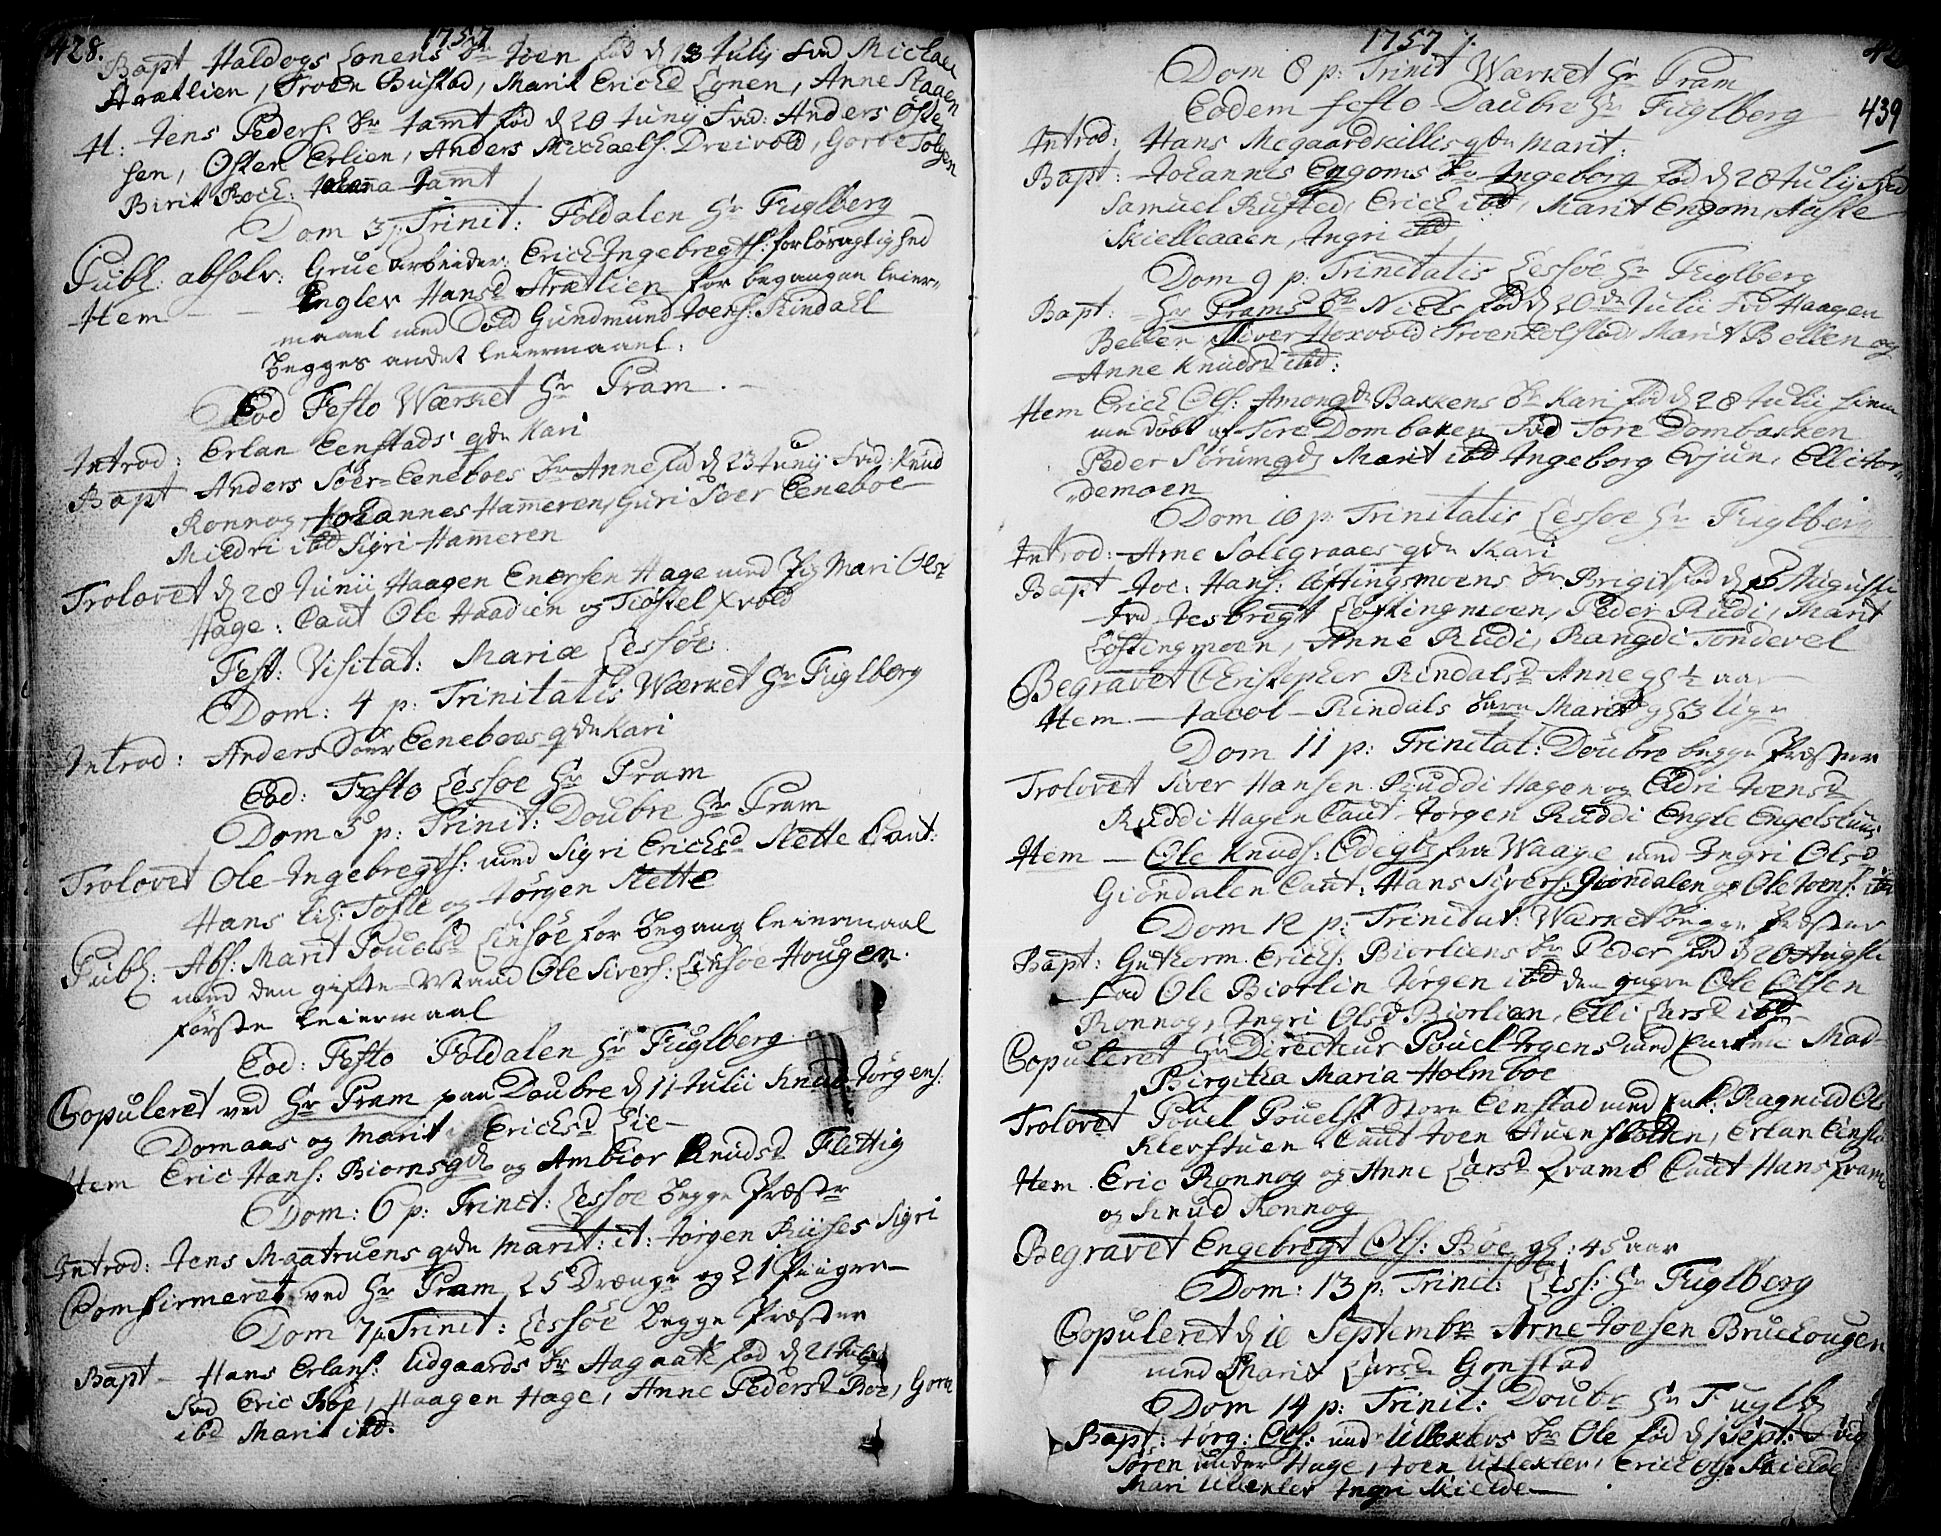 428. 1757
Bapt Haldogs Lonens Br Joen fød d 13 July Fad Michael
Arætlien, Troen Bustad, Marit Erichsd Lonen, Anne Stagen
It: Jens Peders: Br Jamt fød d 20 Junij Fad: Anders Oste
sen, Osten Erlien, Anders Michaels. Dreivold, Gorbe
Birit Jamt
Dom 3 p. Trinit: Foldalen Hr Fuglberg
Publ: absolv: Grue arbeider Erich Ingebregts: forløsagtighed
Item - - Engler Hansd Arætlien for begangen leier-
maael med Sold Gundmund Joens: Rindall
begges andet leiermaael.
Eod Festo Wærket Hr Pram.
Introd: Erlan Eenstads qde Kari
Bapt Anders Søer-Eeneboes Br Anne fød d 23 Junij Fad: Knud
Ronnog, Johannes Hameren, Guri Søer Eeneboe
Mildri ibd Sigri Hameren
Trolovet d 28 Junii Haagen Enersen Hage med Pig Mari Olsd
Hage: Caut Ole Haadien og Tiøstel Kvold
Fest: Visitat: Mariæ Lessøe
Dom: 4 p: Trinitatis Wærket Hr Fuglberg
Introd: Anders Søer Eeneboes qde Kari
Eod: Festo Lessøe Hr Pram
Dom 5 p: Trinit: Doubre Hr Pram
Trolovet Ole Ingebregts: med Sigri Erichsd Slette Caut:
Hans Tofte og Jørgen Slette
Publ: Abs: Marit Pouelsd Linsøe for begang leiermaal
med den gifte Mand Ole Sivers: Linsøe Hougen.
første leiermaal
Eod: Festo Foldalen Hr Fuglberg
Copuleret ved Hr Pram paa Doubre d 11 Julii Knud Jørgens:
Domaas og Marit Erichsd Lie
Item Eric Hans: Biornsgd og Ambior Knudsd Flettig
Dom: 6 p: Trinit: Lessøe begge Præster
Introd: Jens Maatruens qde Marit: it: Jørgen Riises Sigri
Comfirmeret ved Hr Pram 25 Drænge og 21 Piiger
Dom 7 p Trinit: Lessøe begge Præster
Bapt - Hans Erlans: Udgaards Br Aagaat fød d 21
Fad Eric Bøe, Haagen Hage, Anne Pedersd Bøe, Goro
ibd Marit ibd.
1757
439
Dom 8 p: Trinit Wærket Hr Pram
Eodem festo Daubre Hr Fuglberg
Introd: Hans qde Marit.
Bapt: Johannes Engoms Br Ingeborg fød d 28 Julij Fad
Samuel Rusted, Erich ibd, Marit Engom, Aaste
Skielleaaen, Ingri ibd
Dom 9 p: Trinitatis Lessøe Hr Fuglberg
Bapt: Hr Prams Br Niels fød d 20de Julii Fad Haagen
Bellen, Siver Marit Bellen og
Anne Knudsd ibd:
Item Erich Ols: Bakkens Br Kari fød d 28 Julii
døbt af Tore Dombaken Fad Tore Dombakken
Peder Sørumgd Marit ibd Ingeborg Evjun, Elli Jor-
demoen
Dom 10 p: Trinitatis Lessøe Hr Fuglberg
Introd: Arne Solegraaes qde Kari
Bapt Joe: Hans: Løftingsmoens Br Brigit fød d Auguste
Fad Jesbregt Løftingmoen, Peder Rudi, Marit
Løftingmoen, Anne Rudi, Rangdi Tondevel
Begravet Christopher Rindalsd Anne gl ½ aar
Item - Jacob Rindals barn Marit gl 3 Uger
Dom 11 p: Trinitat: Doubre begge Præster
Trolovet Siver Hansen Ruddi Hagen og Eldri Joensd
Ruddi Hagen Caut Jørgen Ruddi Engle
Item - Ole Knuds: Odegd fra Waage med Ingri Olsd
Giondalen Caut: Hans Sivers: Giondalen og Ole Joens: ibd
Dom 12 p: Trinitat: Wærket begge Præster
Bapt: Guthorm Erichs: Biorliens Br Peder fød d 20 Augste
Fad Ole Biorlin Jørgen ibd den Ole Olsen
Ronnog, Ingri Olsd Biorlien, Elli Larsd ibd
Copuleret Hr Directeur Pouel med Mad-
Birgitta Maria Holmboe
Trolovet Pouel Pouels: Store Eenstad med Enk: Ragnild Ols
Klevstuen Caut Joen Erlan Eensta
Item Eric Ronnog og Anne Larsd Kvamb Caut Hans Kvam
og Knud Ronnog
Begravet Engebregt Ols: Bøe gl: 45 aar
Dom: 13 p: Trinit: Less: Hr Fuglberg
Copuleret d 10 Septembr Arne Joesen Bruehougen
med Marit Larsd Gonstad
Dom 14 p: Trinit: Doubr Hr Fuglb
Bapt: Jørg: Ols: Ullekleves Br Ole fød d 1 Sept: Fad
Søren under Hage, Joen Ulleklev, Erich Ols Skielde
Mari Ulleklev Ingri Skielde